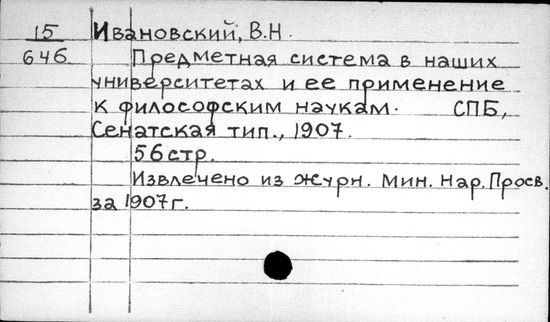 15 Ивановский, В.Н.
646 Предметная система в наших
университетах и ее применение
к философским наукам. СПБ,
Сенатская тип., 1907.
56 стр.
Извлечено из журн. Мин. Нар. Просв.
за 1907 г.